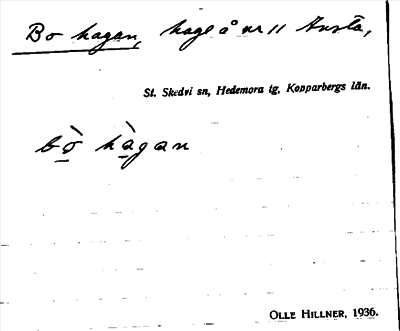 Bo hagan, hage å nr 11 Ansta,
St. Skedvi sn, Hedemora tg, Kopparbergs län.
bò̱ hà̱gan
OLLE HILLNER, 1936.